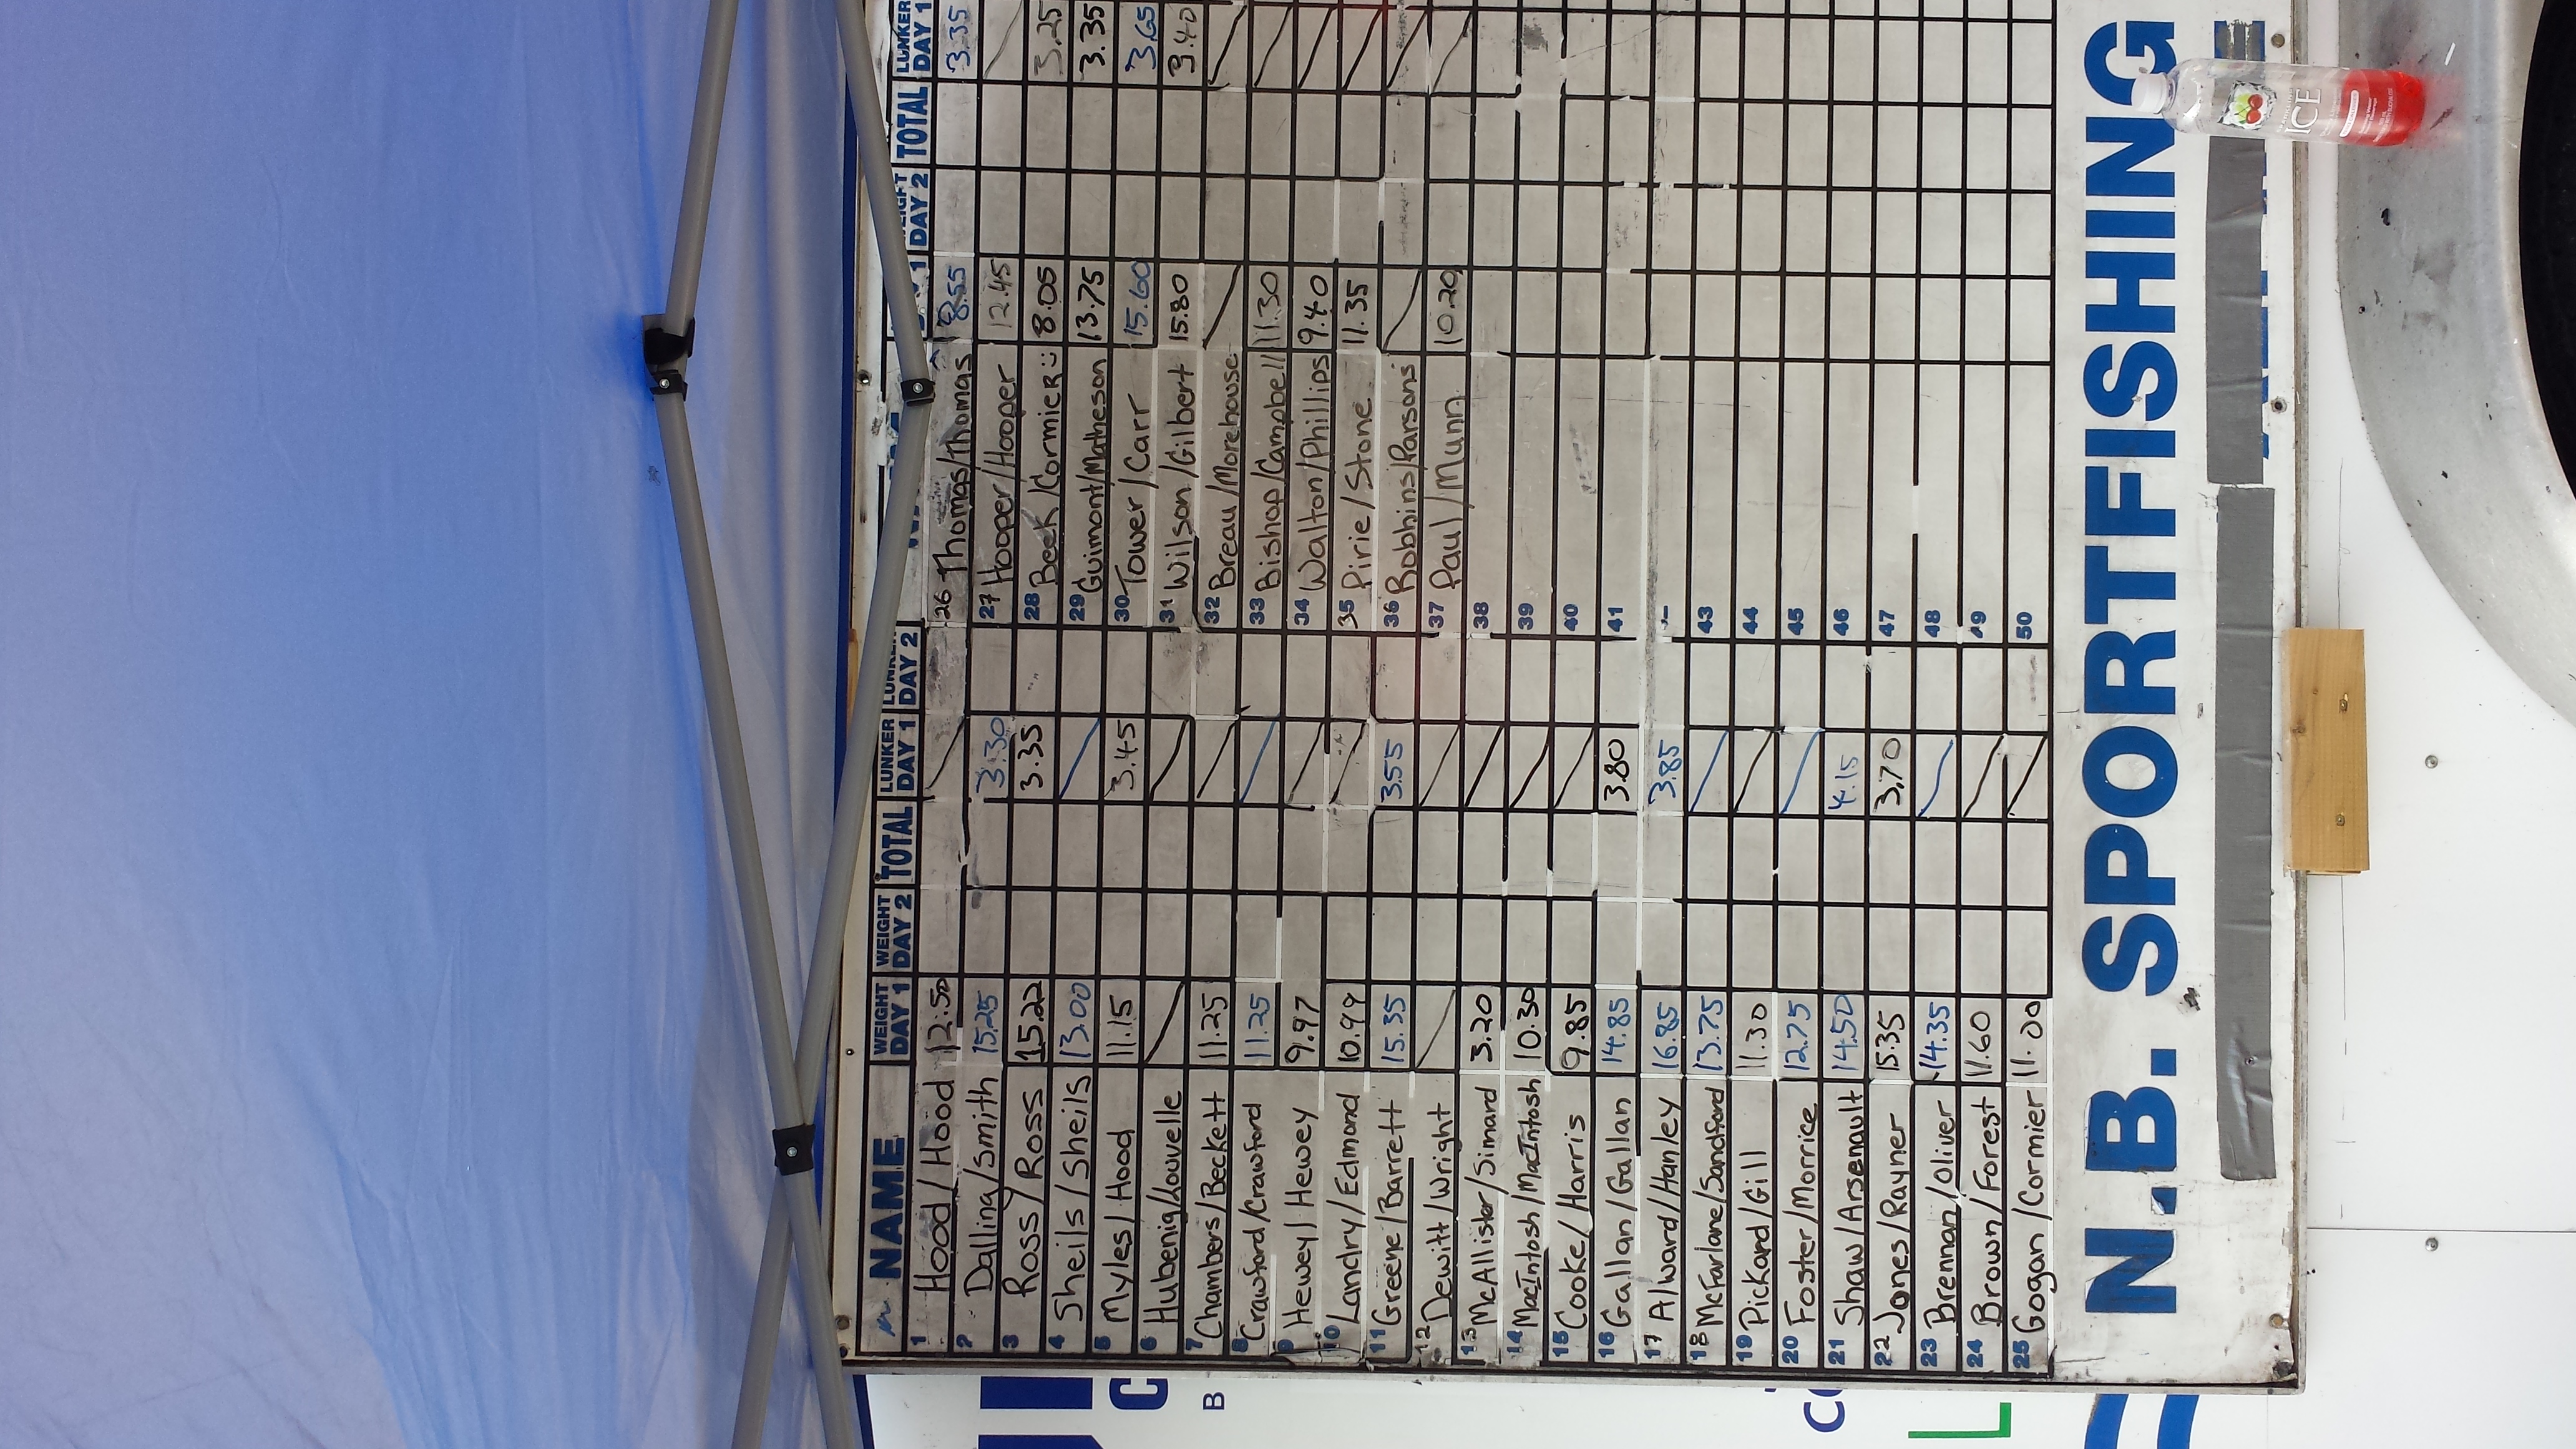 NAME WEIGHT DAY 1 WEIGHT DAY 2 TOTAL LUNKER DAY 1 LUNKER DAY 2
1 Hood/Hood 12.50
2 Dalling/Smith 15.25 3.30
3 Ross/Ross 15.22 3.35
4 Sheils/Sheils 13.00
5 Myles/Hood 11.15 3.45
6 Hubenig/Louvelle
7 Chambers/Beckett 11.25
8 Crawford/Crawford 11.25
9 Hewey/Hewey 9.97
10 Landry/Edmond 10.99
11 Greene/Barrett 15.35 3.55
12 Dewitt/Wright
13 McAllister/Simard 3.20
14 MacIntosh/MacIntosh 10.30
15 Cooke/Harris 9.85
16 Gallan/Gallan 14.85 3.80
17 Alward/Hanley 16.85 3.85
18 McFarlane/Sandford 13.75
19 Pickard/Gill 11.30
20 Foster/Morrice 12.75
21 Shaw/Arsenault 14.50 4.15
22 Jones/Rayner 15.35 3.70
23 Brennan/Oliver 14.35
24 Brown/Forest 11.60
25 Gogan/Cormier 11.00
DAY 2 TOTAL LUNKER DAY 1
26 Thomas/Thomas 8.55 3.35
27 Hooper/Hooper 12.45
28 Beek/Cormier 8.05 3.25
29 Guimont/Matheson 13.75 3.35
30 Tower/Carr 15.60 3.65
31 Wilson/Gilbert 15.80 3.40
32 Breau/Morehouse
33 Bishop/Campbell 11.30
34 Walton/Phillips 9.40
35 Pirie/Stone 11.35
36 Robbins/Parsons
37 Paul/Munn 10.20
38
39
40
41
43
44
45
46
47
48
49
50
N.B. SPORTFISHING
ICE